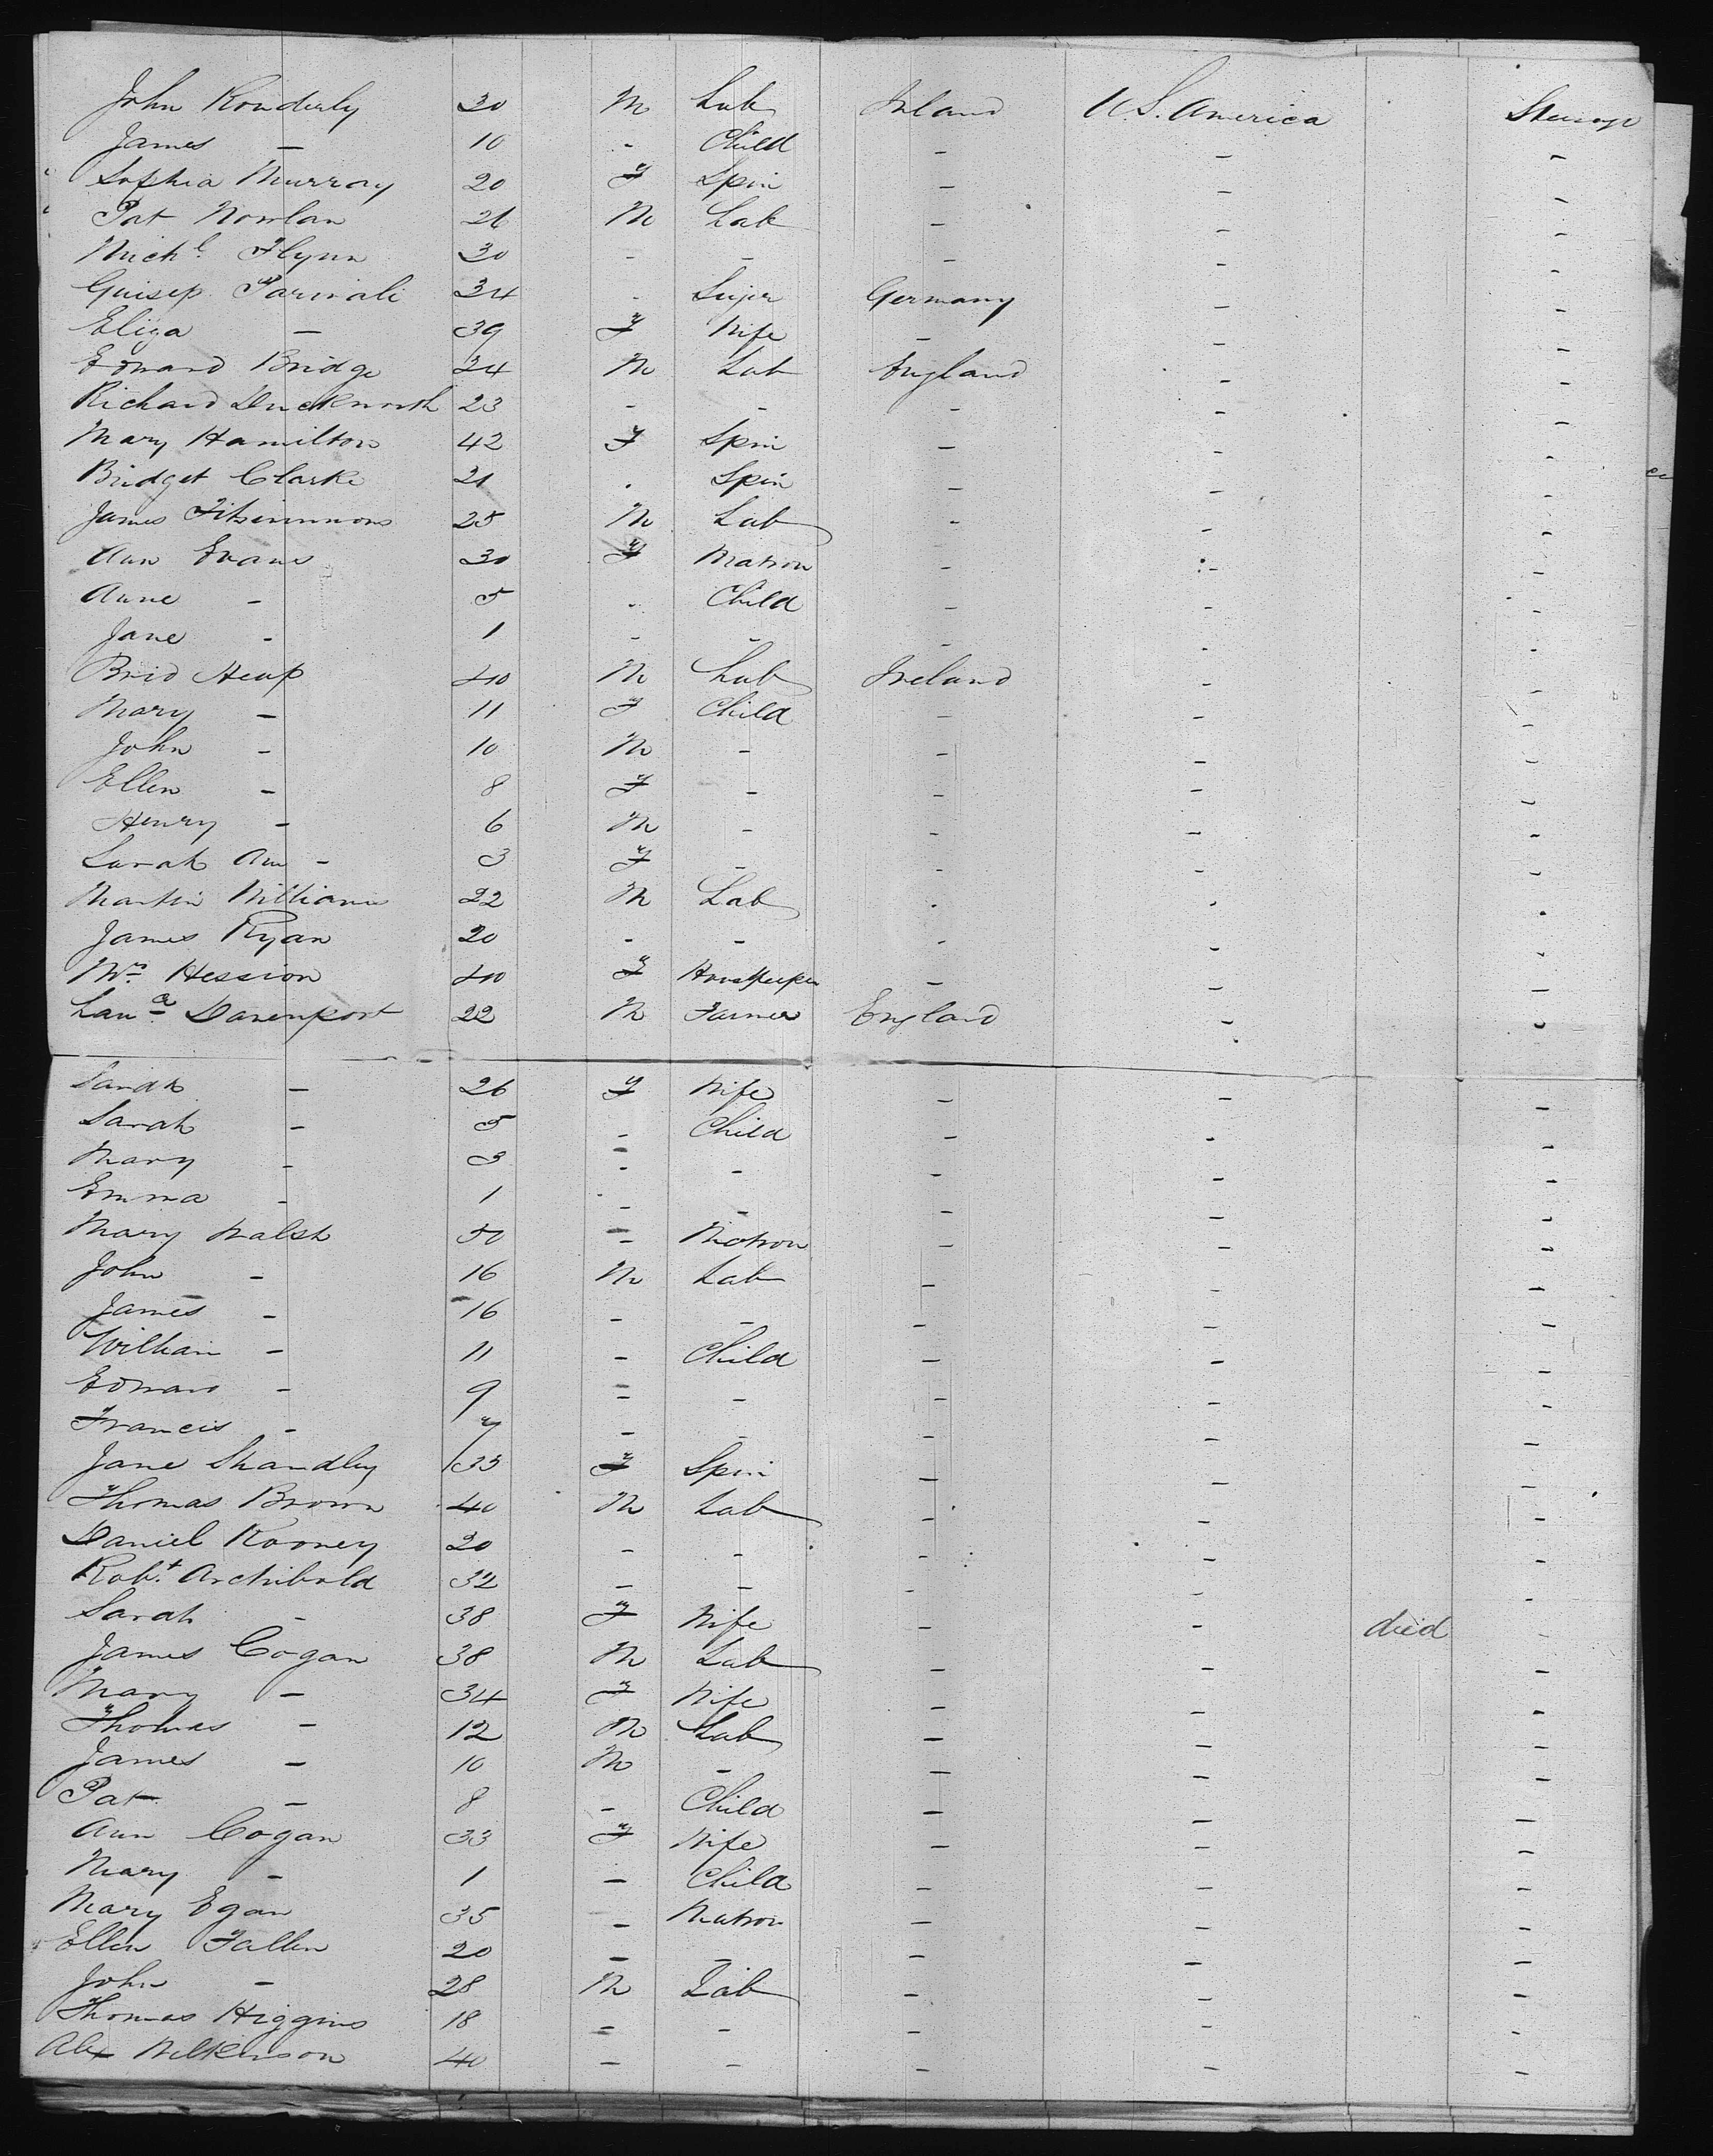 John Konderly 30 M Lab Ireland U.S. America Steerage
James — 10 - Child - - -
Sophia Murray 20 F Spin - - -
Pat Nowlan 26 M Lab - - -
Michl Flynn 30 - - - - -
Guisep 34 - Germany - -
Eliza — 39 F Wife - - -
Edward Bridge 24 M Lab England - -
Richard Duckworth 23 - - - - -
Mary Hamilton 42 F Spin - - -
Bridget Clarke 21 - Spin - - -
James Fitzsimmons 25 M Lab - - -
Ann Evans 30 F Matron - - -
Anne - 5 - Child - - -
Jane - 1 - - - - -
Brid Heap 40 M Lab Ireland - -
Mary - 11 F Child - - -
John - 10 M - - - -
Ellen - 8 F - - - -
Henry - 6 M - - - -
Sarah Ann - 3 F - - - -
Martin Williams 22 M Lab - - -
James Ryan 20 - - - - -
Mrs Hession 40 F Housekeeper - - -
Davenport 22 M Farmer England - -
Sarah - 26 F Wife - - -
Sarah - 5 - Child - - -
Mary - 3 - - - - -
Emma - 1 - - - - -
Mary Walsh 50 - Matron - - -
John - 16 M Lab - - -
James - 16 - - - - -
William - 11 - Child - - -
Edward - 9 - - - - -
Francis - 7 - - - - -
Jane Shandley 33 F Spin - - -
Thomas Brown 40 M Lab - - -
Daniel Rooney 20 - - - - -
Robt Archibald 32 - - - - -
Sarah - 38 F Wife - - died -
James Cogan 38 M Lab - - -
Mary - 34 F Wife - - -
Thomas - 12 M Lab - - -
James - 10 M - - - -
Pat - 8 - Child - - -
Ann Cogan 33 F Wife - - -
Mary - 1 - Child - - -
Mary Egan 35 - Matron - - -
Ellen Fallen 20 - - - - -
John - 28 M Lab - - -
Thomas Higgins 18 - - - - -
Alex Wilkinson 40 - - - - -